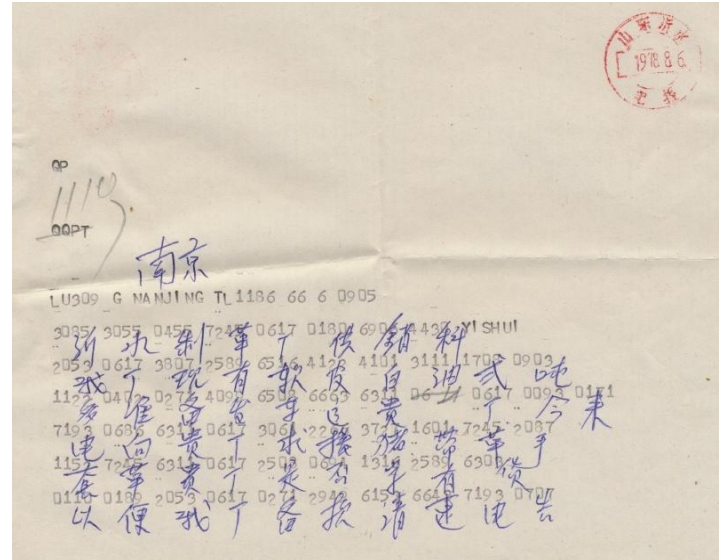 山东沂水
1978.8.6
电报
QP
1110
QQPT
南京
LU309 G NANJING TL1186 66 6 0905
3085 3055 0455 7245 0617 0180 6906 4430 YISHUI
沂水制革厂供销科
2053 0617 3807 2589 6516 4122 4101 3111 1708 0903
我厂现有软皮白油弍吨
1122 0402 0271 4099 6508 6663 6311 0617 0093 0171
多准备发车运贵厂今来
7193 0686 6311 0617 3061 2255 3727 1601 7245 2087
电向贵厂求换猪带革手
1152 7245 6311 0617 2508 0694 1317 2589 6303
套革贵厂是否存有货
0110 0189 2053 0617 0271 2949 6153 6643 7193 0707
以便我厂备款请速电告